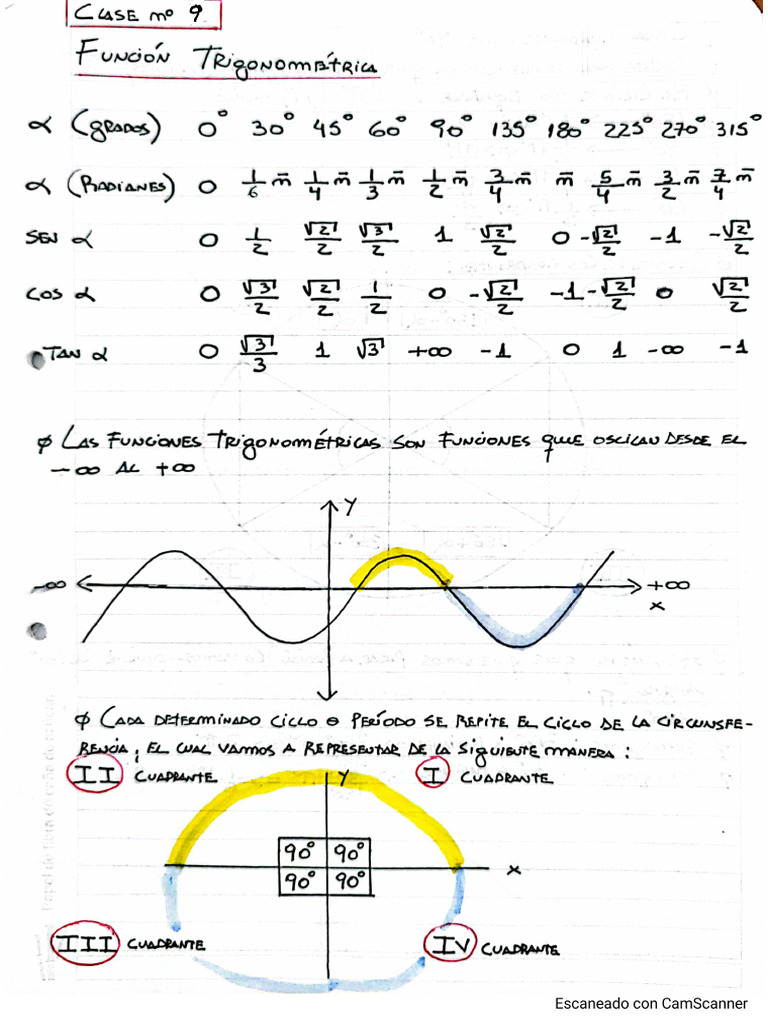 CLASE nº 9
FUNCIÓN TRIGONOMÉTRICA
α (GRADOS) 0° 30° 45° 60° 90° 135° 180° 225° 270° 315°
α (RADIANES) 0 1/6 π 1/4 π 1/3 π 1/2 π 3/4 π π 5/4 π 3/2 π 7/4 π
SEN α 0 1/2 √2/2 √3/2 1 √2/2 0 -√2/2 -1 -√2/2
COS α 0 √3/2 √2/2 1/2 0 -√2/2 -1 -√2/2 0 √2/2
TAN α 0 √3/3 1 √3 +∞ -1 0 1 -∞ -1
φ LAS FUNCIONES TRIGONOMÉTRICAS SON FUNCIONES QUUE OSCILAN DESDE EL
-∞ AL +∞
Y
-∞ +∞
X
φ CADA DETERMINADO CICLO O PERÍODO SE REPITE EL CICLO DE LA CIRCUNSFE-
RENCIA, EL CUAL VAMOS A REPRESENTAR DE LA SIGUIENTE MANERA:
II CUADRANTE Y I CUADRANTE
90° 90°
X
90° 90°
III CUADRANTE IV CUADRANTE
Papel de fibra de caña de azúcar.
Escaneado con CamScanner